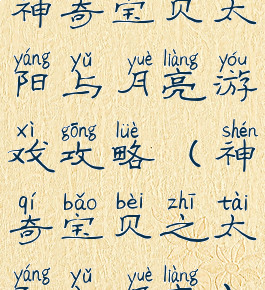 神奇宝贝太
yáng yǔ yuè liàng yóu
阳与月亮游
xì gōng lüè shén
戏攻略(神
qí bǎo bèi zhī tài
奇宝贝之太
yáng yǔ yuè liàng